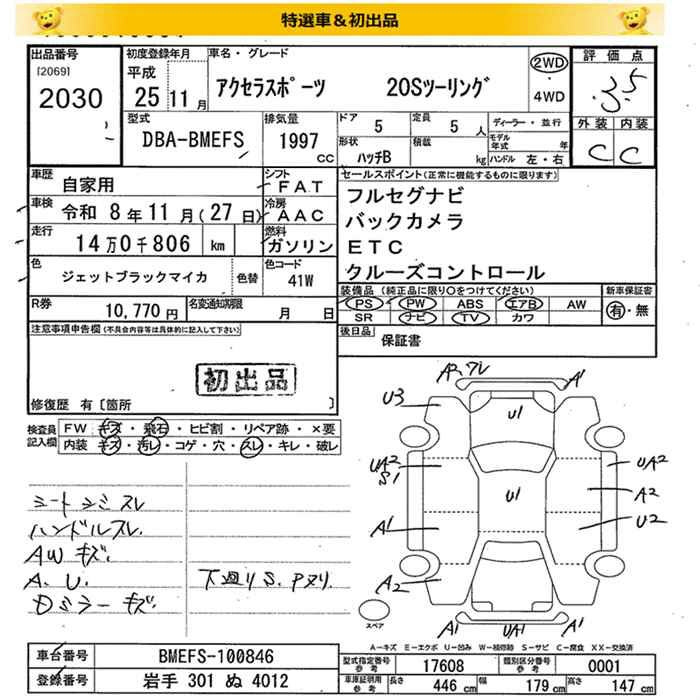 特選車＆初出品
出品番号 初度登録年月 車名・グレード 評価点
[2069] 平成
2030 25 11 月 アクセラスポーツ 20Sツーリング 2WD ・ 4WD 3.5
型式 排気量 ドア 5 定員 5 人 ディーラー・並行 外装 内装
DBA-BMEFS 1997 cc 形状 ハッチB 積載 kg モデル年式 年 ハンドル 左・右 C C
車歴 自家用 シフト FAT セールスポイント(正常に機能するものに限ります)
車検 令和 8 年 11 月(27 日) 冷房 AAC フルセグナビ
走行 14 万 0 千 806 km 燃料 ガソリン バックカメラ
ETC
色 ジェットブラックマイカ 色替 色コード 41W クルーズコントロール
装備品(純正品に限り○をつけてください) 新車保証書
R券 10,770 円 名変通知期限 月 日 PS PW ABS エアB AW 有・無
SR ナビ TV カワ
注意事項申告欄(不具合内容等は具体的に記入して下さい) 後日品 保証書
初出品
修復歴 有〔箇所 〕
検査員記入欄 FW キズ・飛石・ヒビ割・リペア跡・×要
内装 キズ・汚レ・コゲ・穴・スレ・キレ・破レ
A2 フレ A1
U3 U1
UA2 S1 UA2
U1 A2
A1 U2
A2
スペア A1 UA1 A1
シートシミスレ
ハンドルスレ.
AWキズ.
A. U. 下廻りS. Pヌリ.
Dミラーキズ.
A－キズ E－エクボ U－凹み W－補修跡 S－サビ C－腐食 XX－交換済
車台番号 BMEFS-100846 型式指定番号 参考 17608 類別区分番号 参考 0001
登録番号 岩手 301 ぬ 4012 車庫証明用 参考 長さ 446 cm 幅 179 cm 高さ 147 cm